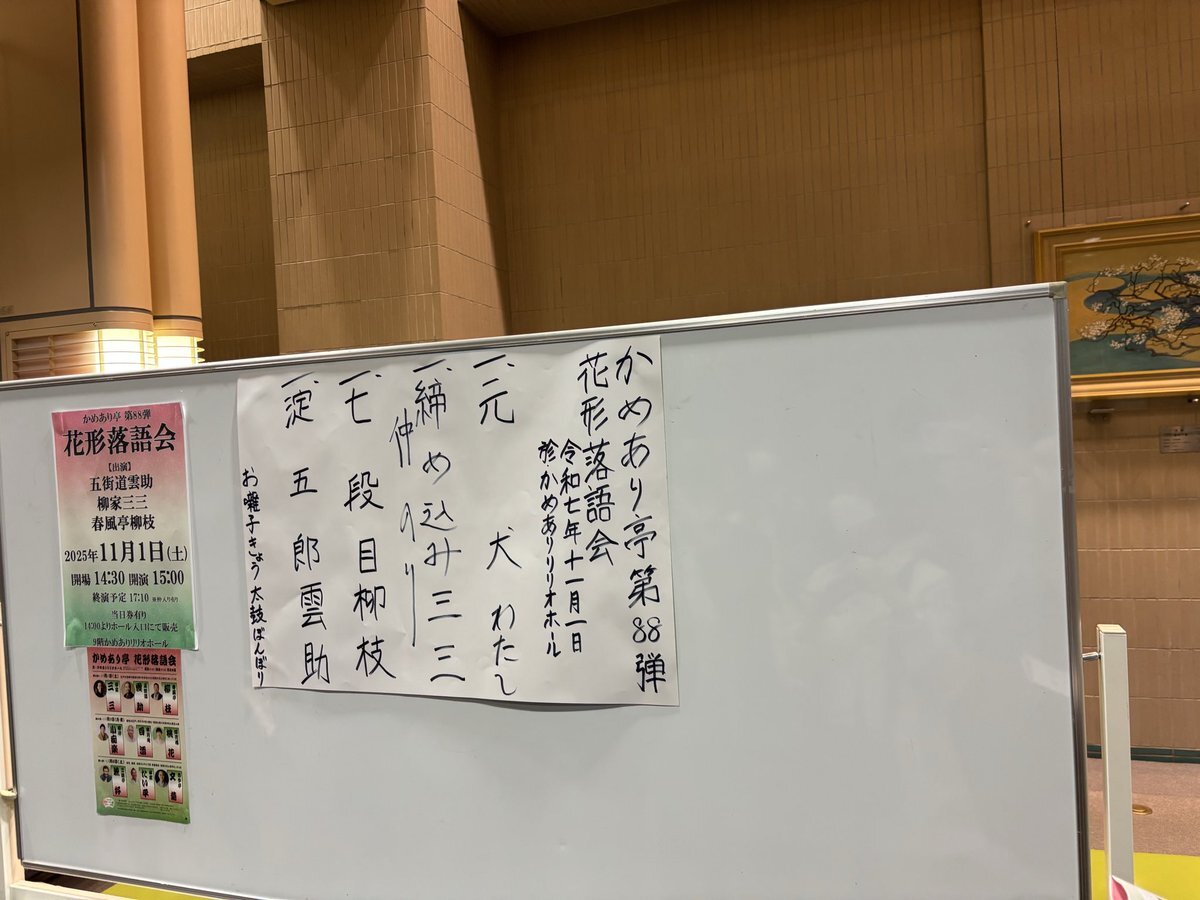 かめあり亭第88弾
花形落語会
令和七年十一月一日
於.かめありリリオホール
一、元 犬 わたし
一、締め込み 三三
仲のり
一、七段目 柳枝
一、淀五郎 雲助
お囃子きょう 太鼓ぽんぽり
かめあり亭 第88弾
花形落語会
【出演】
五街道雲助
柳家三三
春風亭柳枝
2025年11月1日(土)
開場 14:30 開演 15:00
終演予定 17:10
当日券有り
14:00よりホール入口にて販売
9階かめありリリオホール
かめあり亭 花形落語会
三三
雲助
柳枝